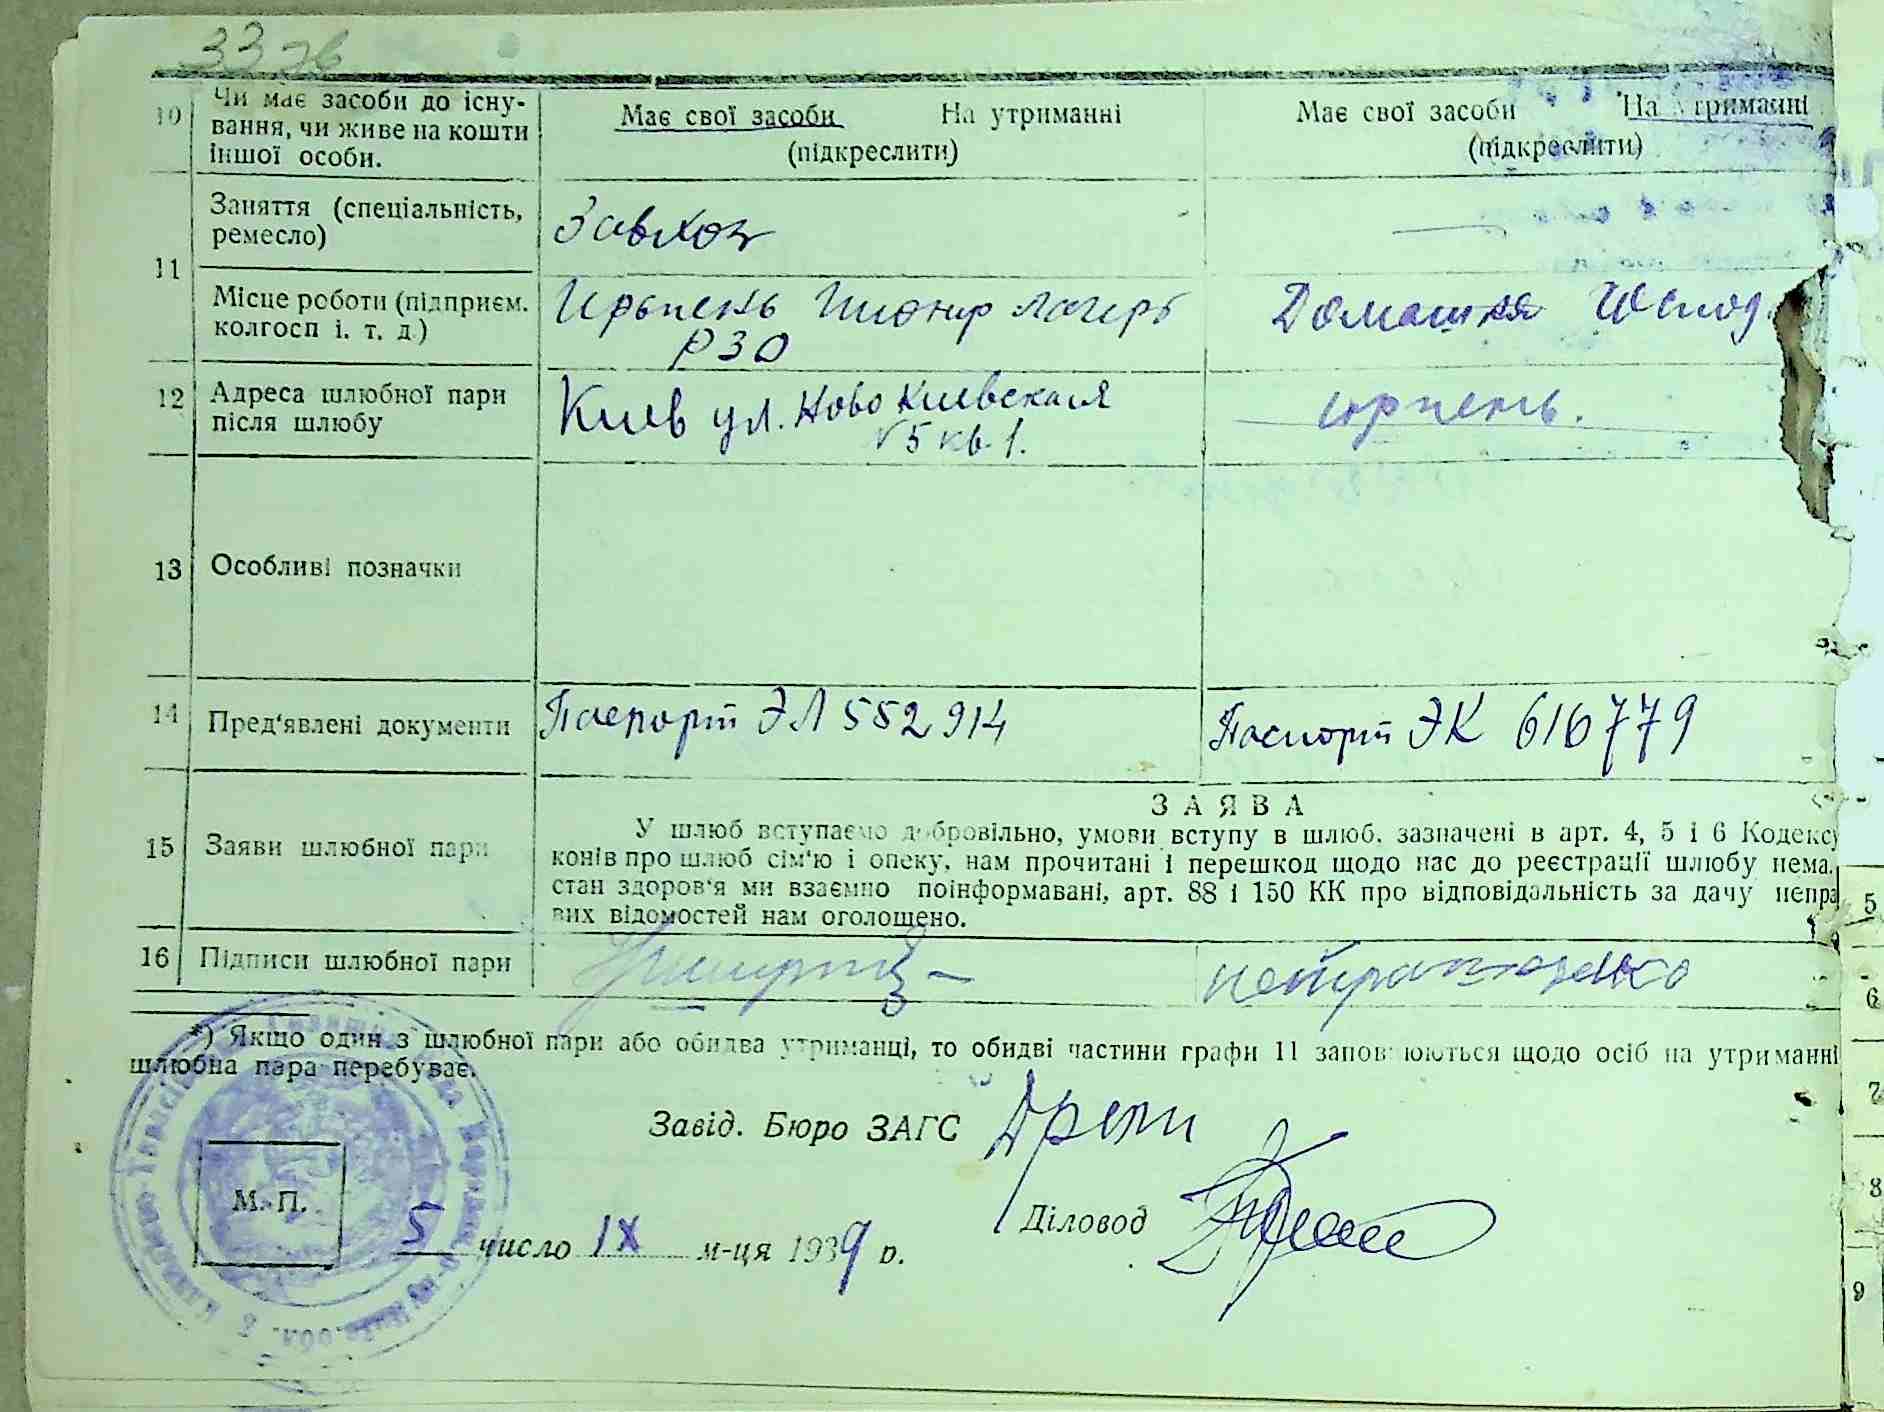 33 зв
10 Чи має засоби до існу-
вання, чи живе на кошти
іншої особи.
Має свої засоби На утриманні
(підкреслити)
Має свої засоби На утриманні
(підкреслити)
11
Заняття (спеціальність,
ремесло)
Завхоз
Місце роботи (підприєм.
колгосп і. т. д.)
Ирпень Пионир лагерь
РЗО
Домашня господ.
12 Адреса шлюбної пари
після шлюбу
Киев ул. Ново Киевская
№5 кв. 1.
ирпень.
13 Особливі позначки
14 Пред'явлені документи
Паспорт ЭЛ 552914
Паспорт ЭК 616779
15 Заяви шлюбної пари
ЗАЯВА
У шлюб вступаємо добровільно, умови вступу в шлюб, зазначені в арт. 4, 5 і 6 Кодексу
конів про шлюб сім'ю і опеку, нам прочитані і перешкод щодо нас до реєстрації шлюбу нема.
стан здоров'я ми взаємно поінформавані, арт. 88 і 150 КК про відповідальність за дачу непра
вих відомостей нам оголошено.
16 Підписи шлюбної пари
*) Якщо один з шлюбної пари або обидва утриманці, то обидві частини графи 11 заповнюються щодо осіб на утриманні
шлюбна пара перебуває.
Завід. Бюро ЗАГС
М. П.
Діловод
5 число IX м-ця 1939 р.
5
6
7
8
9